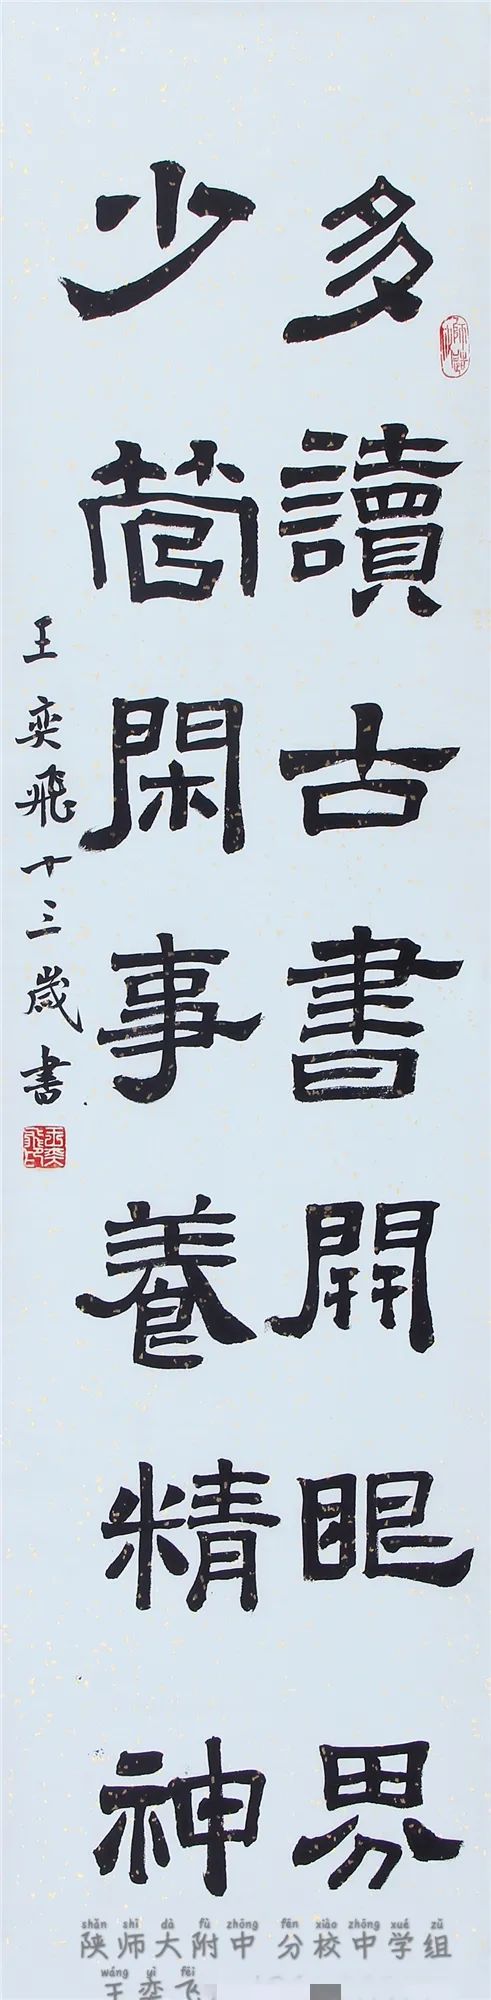 多讀古書開眼界
少管閑事養精神
王奕飛十三歲書
shǎn shī dà fù zhōng fēn xiào zhōng xué zǔ
陕师大附中 分校中学组
wáng yì fēi
王奕飞